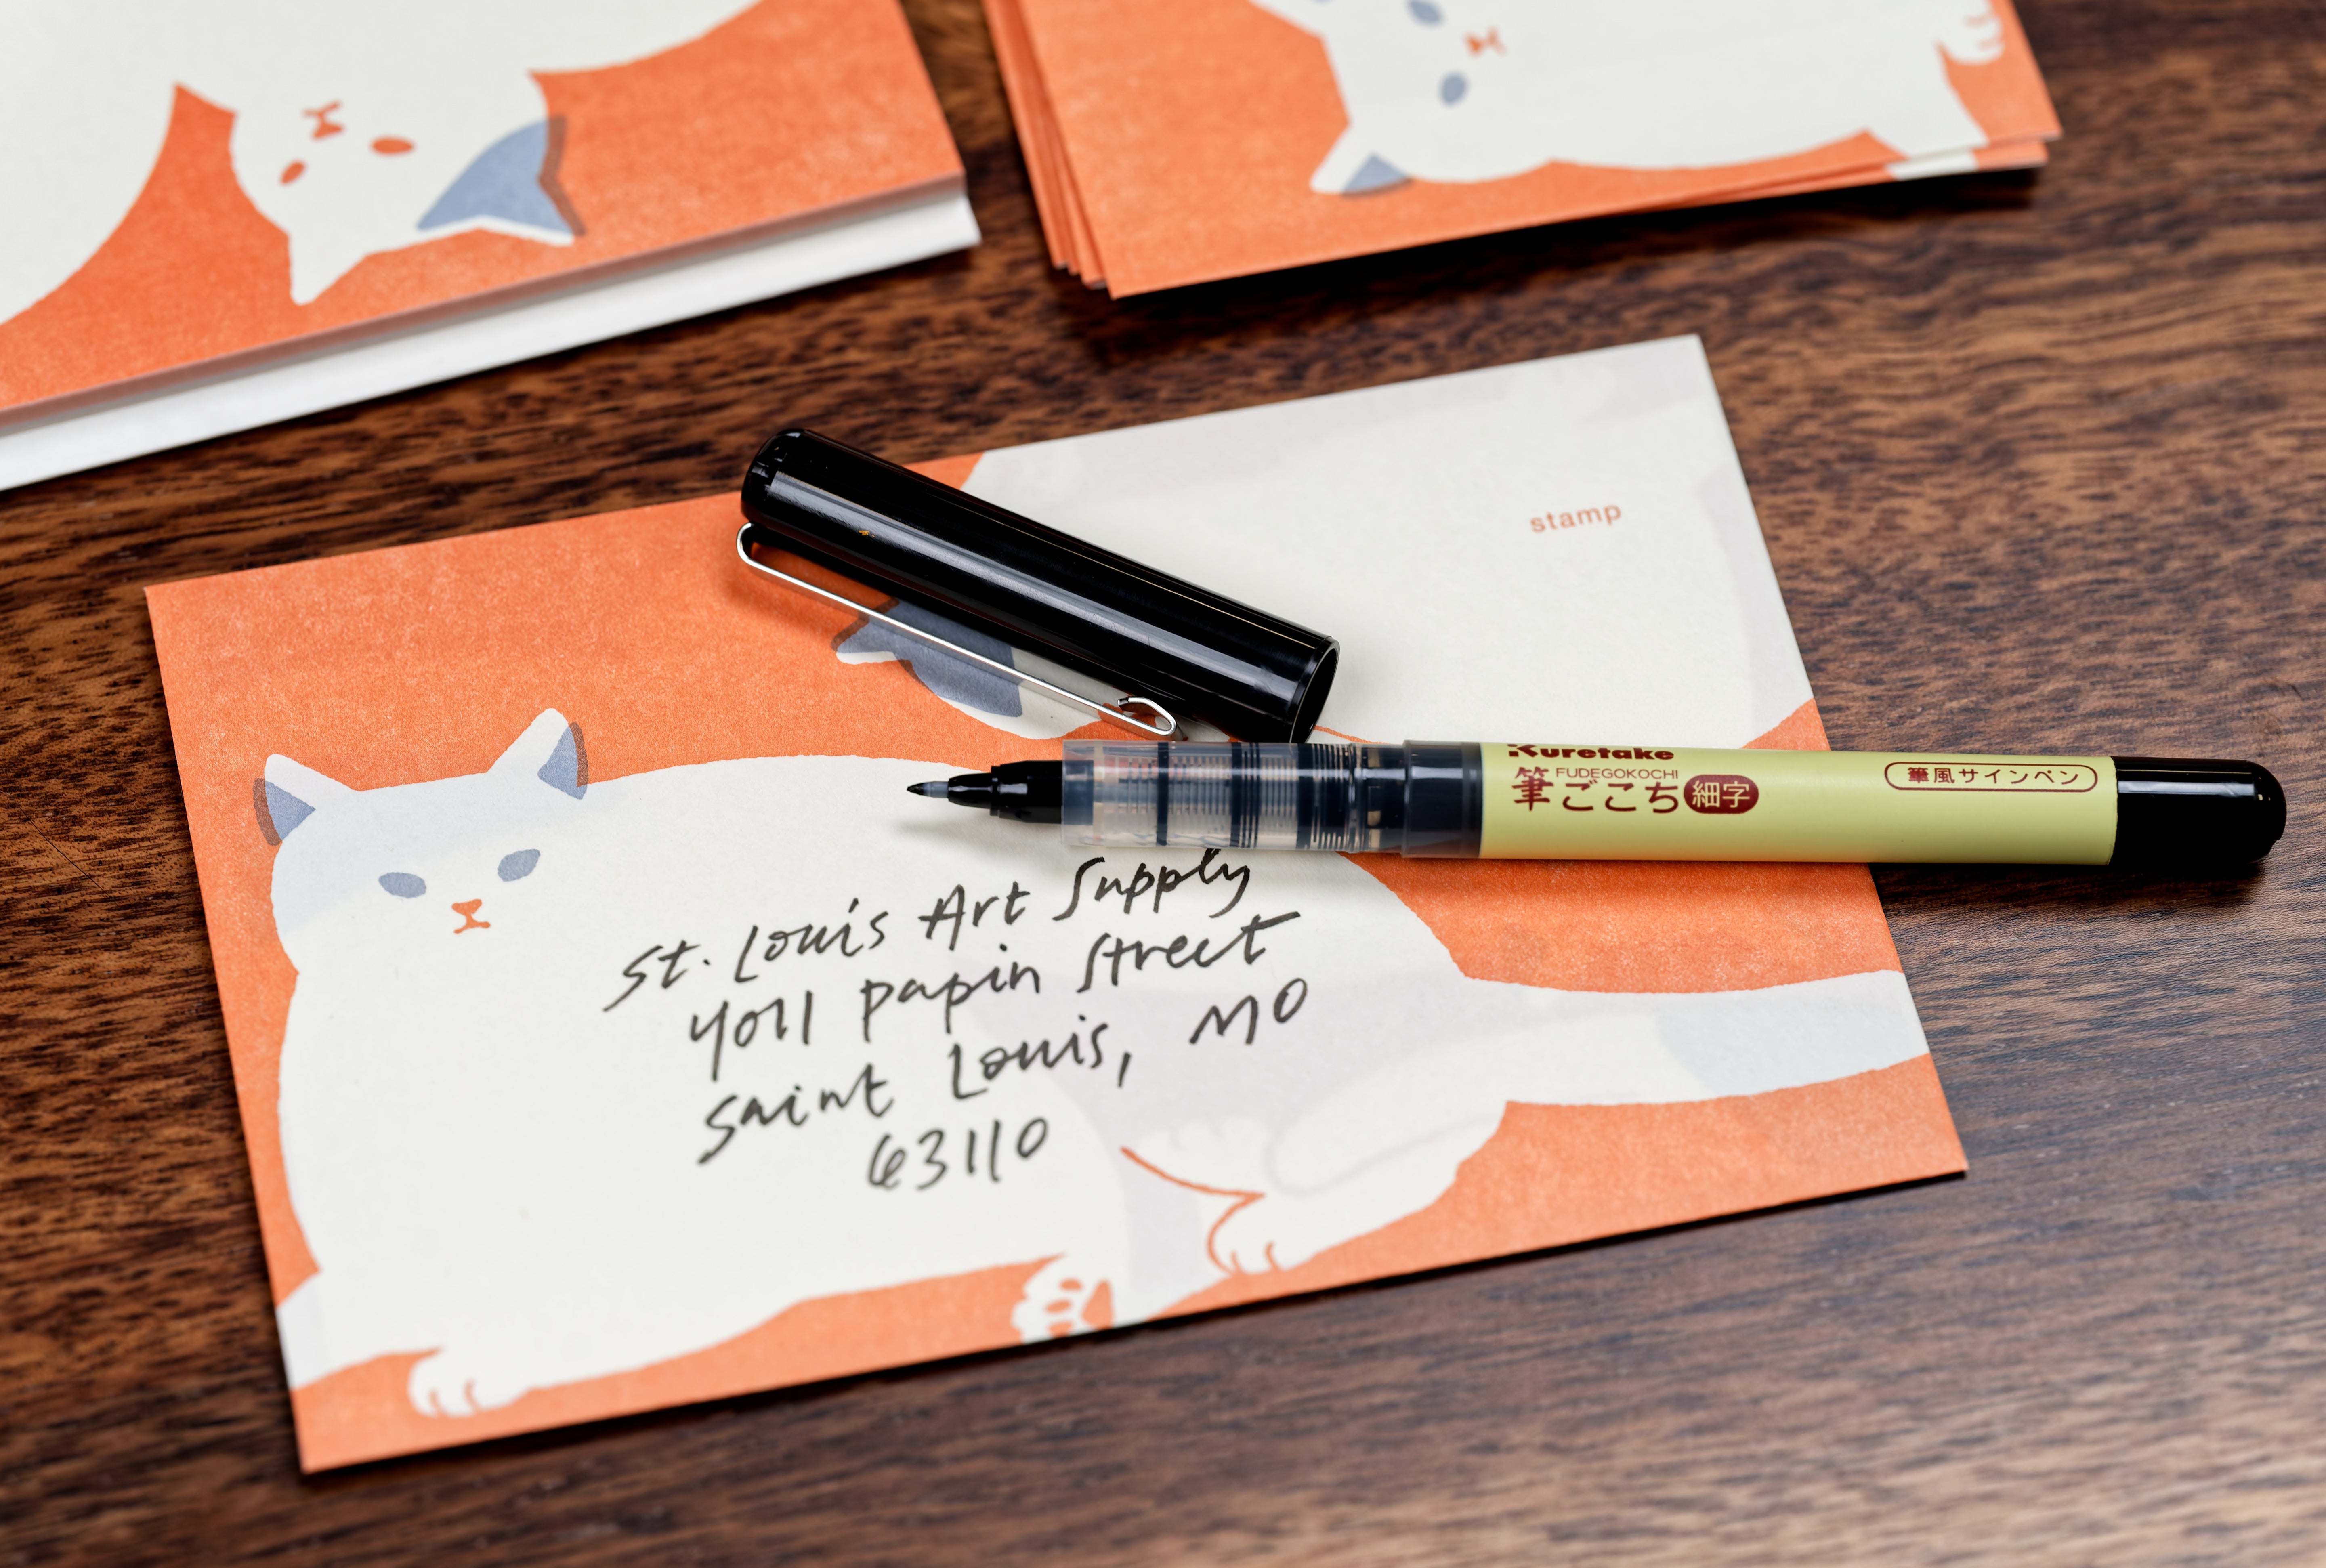 stamp
Kuretake
FUDEGOKOCHI
筆ごこち 細字
筆風サインペン
St. Louis Art Supply
4011 papin street
saint Louis, MO
63110